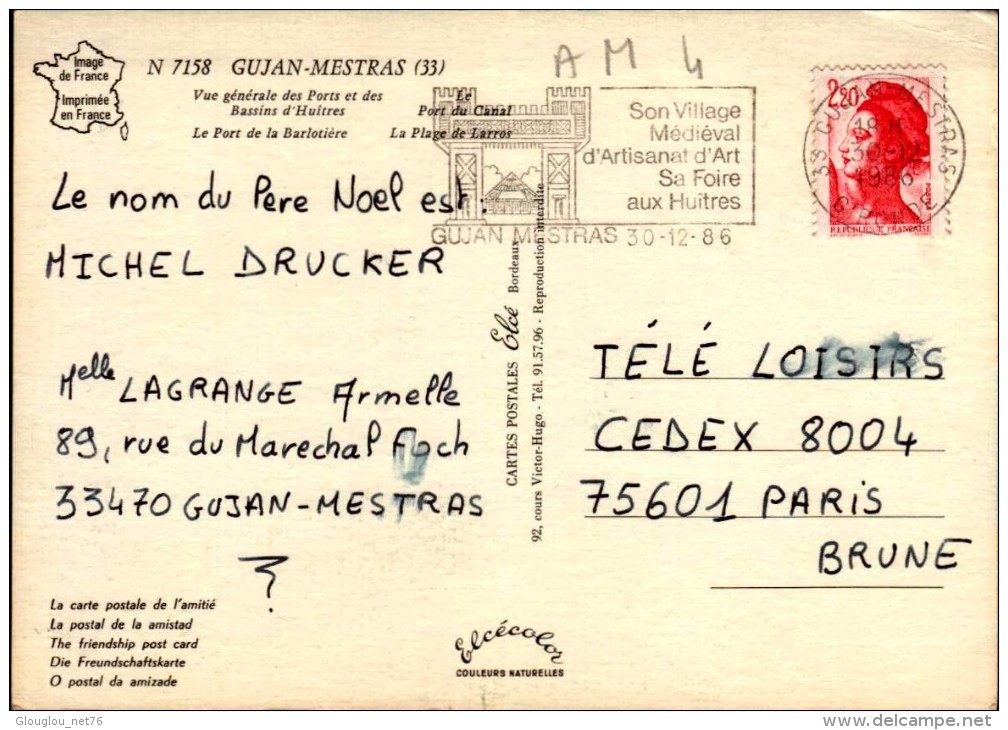 AM 4
Image
de France
Imprimée
en France
N 7158 GUJAN-MESTRAS (33)
Vue générale des Ports et des
Bassins d'Huîtres
Le
Port du Canal
Le Port de la Barlotière
La Plage de Larros
Son Village
Médiéval
d'Artisanat d'Art
Sa Foire
aux Huîtres
GUJAN MESTRAS 30-12-86
2,20
REPUBLIQUE FRANÇAISE
33 GUJAN-MESTRAS
18 H
30-12
1986
GIRONDE
Le nom du Père Noel est :
MICHEL DRUCKER
Melle LAGRANGE Armelle
89, rue du Marechal Foch
33470 GUJAN-MESTRAS
CARTES POSTALES Elcé Bordeaux
92, cours Victor-Hugo - Tél. 91.57.96 - Reproduction interdite
TÉLÉ LOISIRS
CEDEX 8004
75601 PARIS
BRUNE
La carte postale de l'amitié
La postal de la amistad
The friendship post card
Die Freundschaftskarte
O postal da amizade
Elcécolor
COULEURS NATURELLES
Glouglou_net76
www.delcampe.net